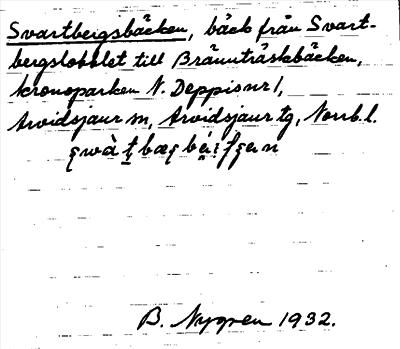 Svartbergsbäcken, bäck från Svart-
bergslobolet till Brännträskbäcken,
kronoparken N. Deppis nr 1,
Arvidsjaur sn, Arvidsjaur tg, Norrb. l.
B. Nygren 1932.